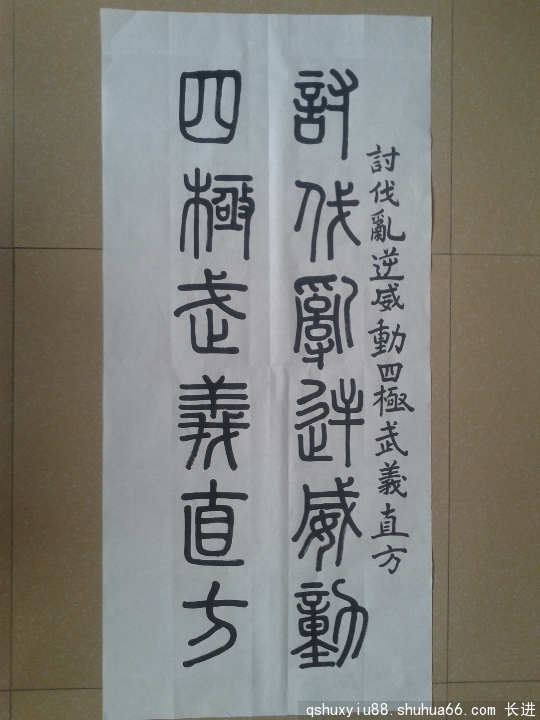 討伐亂逆威動四極武義直方
討伐亂逆威動
四極武義直方
qshuxyiu88.shuhua66.com 长进